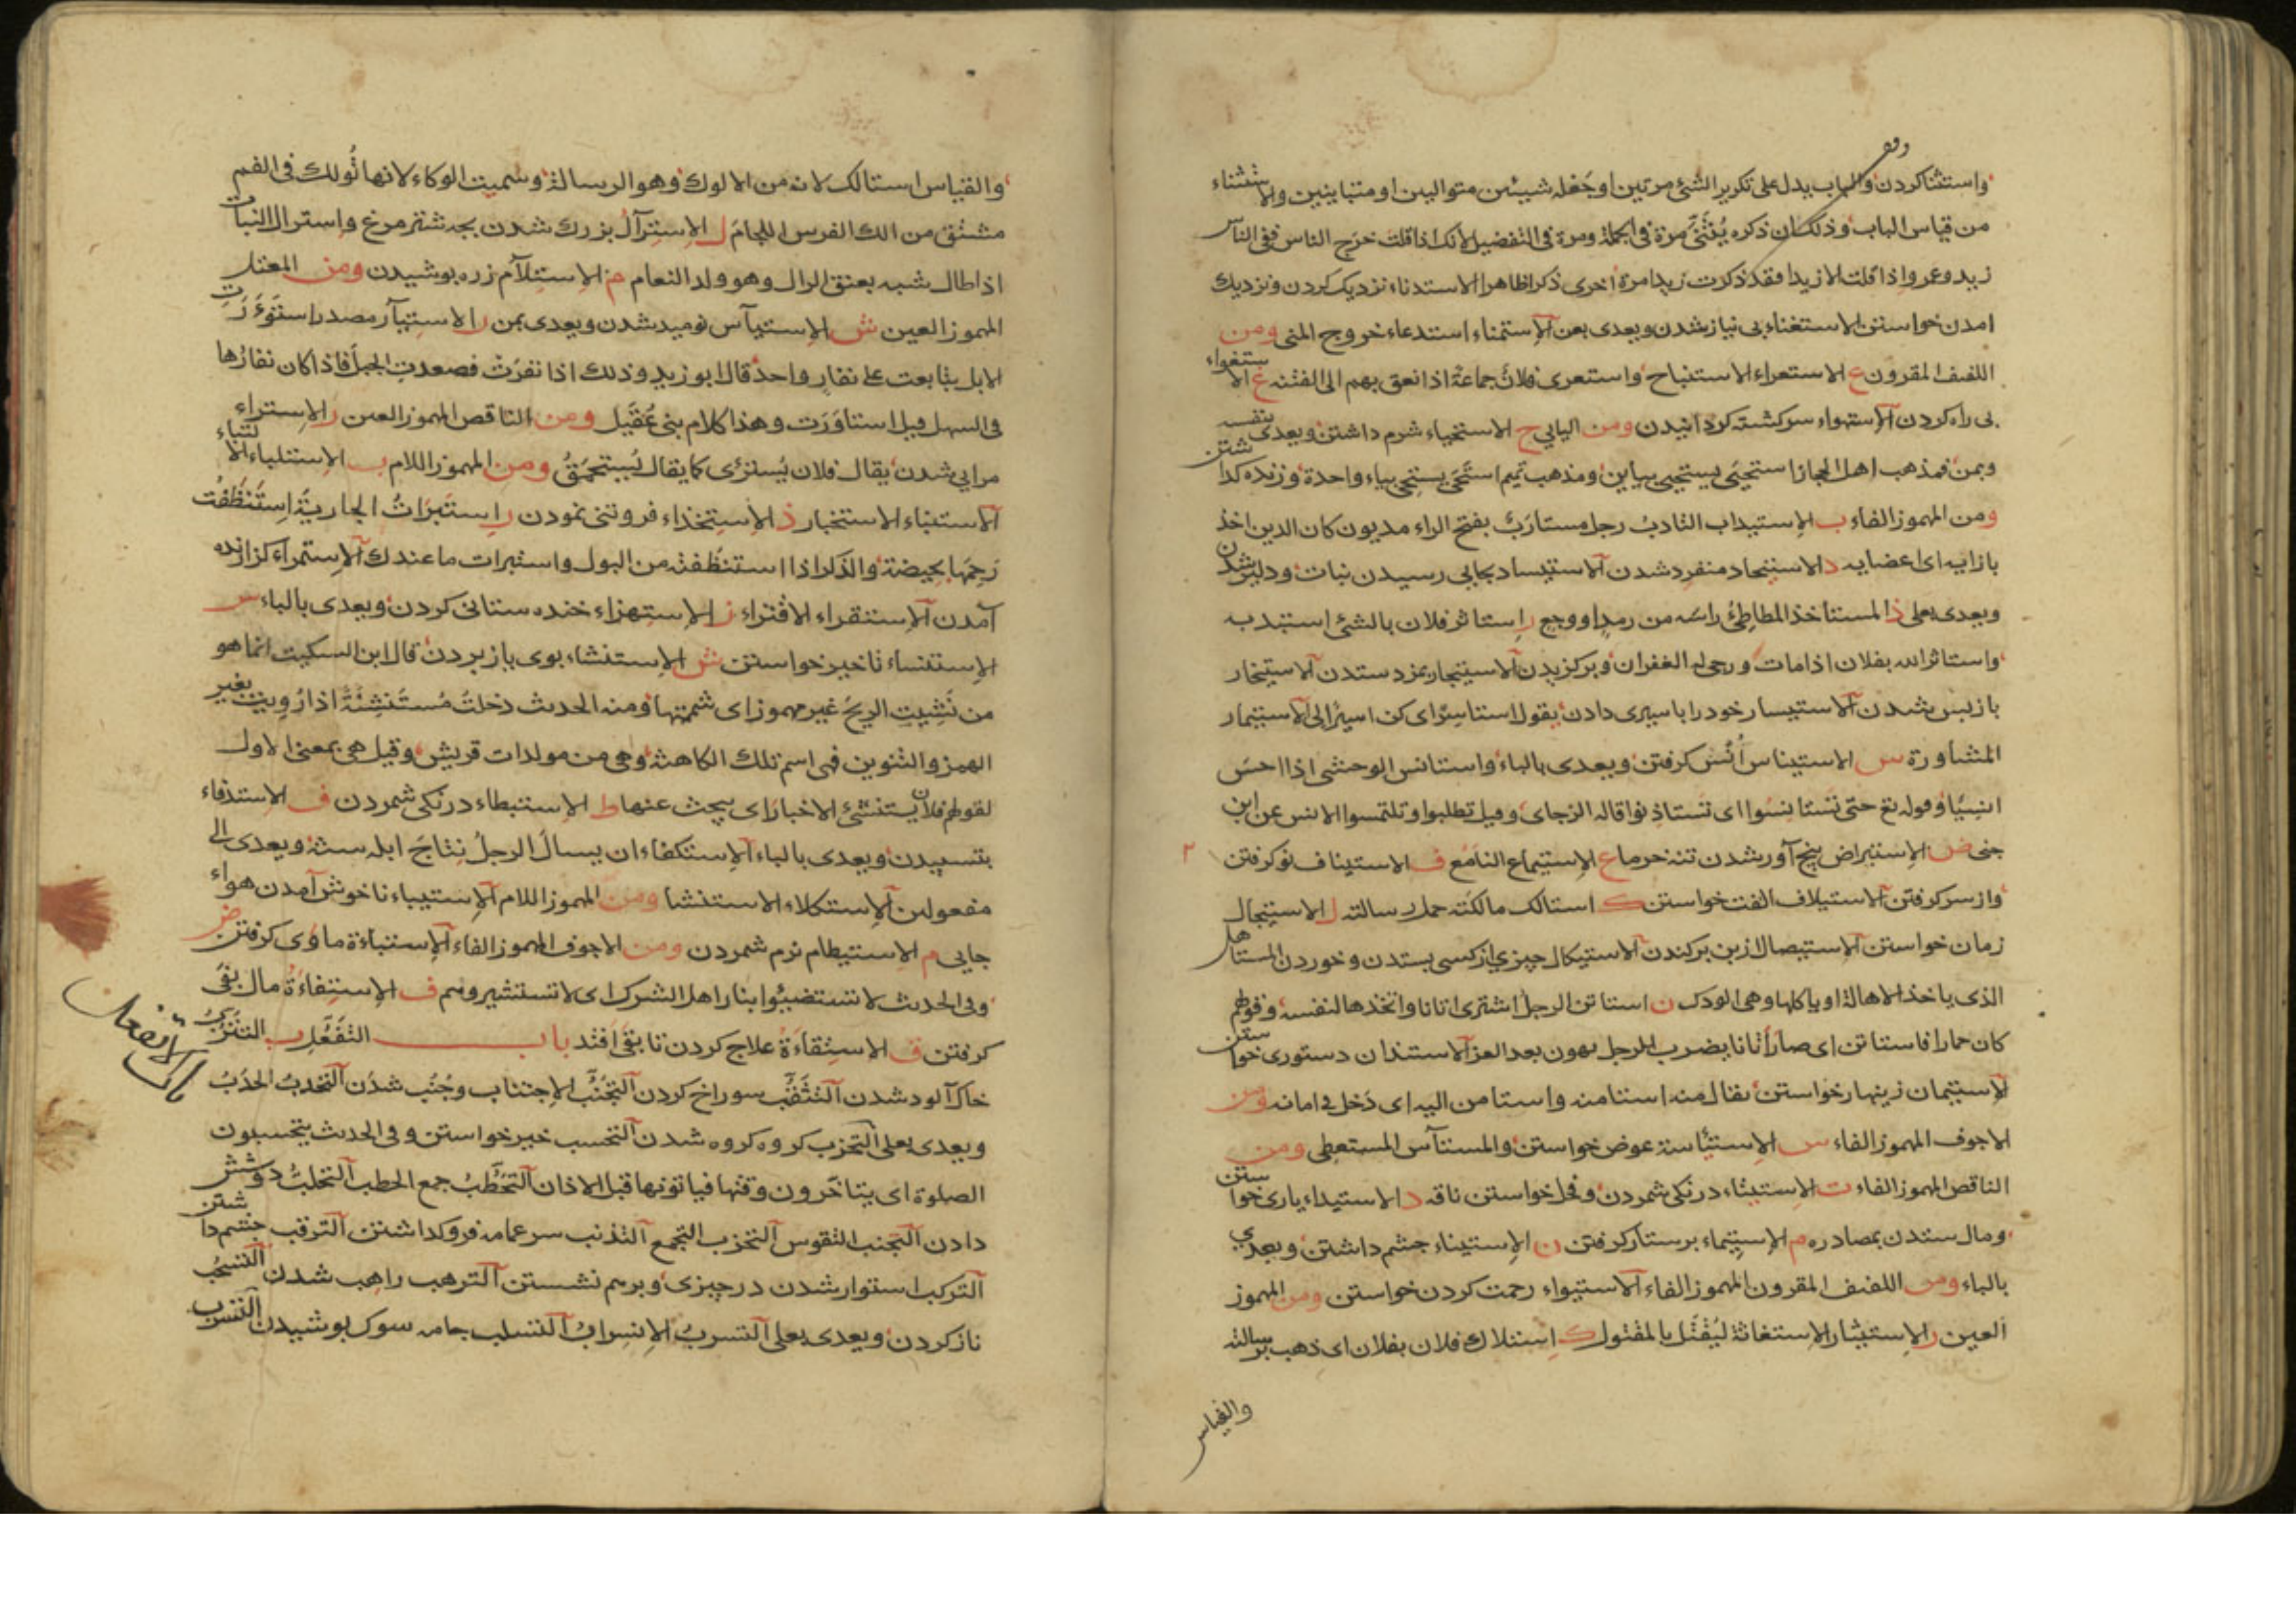 واستثنا كردن والباب يدل على تكرير الشئ مرتين او جعله شيئين متواليين او متباينين والاستثناء
من قياس الباب وذلك ان ذكره يثنى مرة فى الجملة ومرة فى التفضيل لانك اذا قلت خرج الناس ففى الناس
زيد وعمرو اذا قلت الا زيدا فقد ذكرت زيدا مرة اخرى ذكرا ظاهرا الاستدناء نزديك كردن ونزديك
امدن خواستن الاستغناء بى نياز شدن ويعدى بعن الاستمناء استدعاء خروج المنى ومن
اللفيف المقرون ع الاستعراء الاستنباح واستعوى فلان جماعة اذا نعق بهم الى الفتنه غ الاستغواء
بى راه كردن الاستهواء سركشته كردانيدن ومن اليايي ح الاستحياء شرم داشتن ويعدى بنفسه
وبمن فمذهب اهل الحجاز استحيى يستحيي بيايين ومذهب تميم استحى يستحى بياء واحدة وزنده كذاشتن
ومن المهموز الفاء ب الاستيداب التادب رجل مستارب بفتح الراء مديون كان الدين اخذ
بارابه اى اعضايه د الاستيحاد منفرد شدن الاستيساد بجايى رسيدن نبات ودلير شدن
ويعدى بعلى ذ المستاخذ المطاطئ راسه من رمد او وجع ر استاثر فلان بالشئ استبد به
واستاثر الله بفلان اذا مات ورجى له الغفران وبركزيدن الاستيجار بمزد ستدن الاستيخار
بازپس شدن الاستيسار خود را باسيرى دادن يقول استاسر اى كن اسيرا لى الاستيمار
المشاورة س الاستيناس انس كرفتن ويعدى بالباء واستانس الوحشى اذا احس
انسيا وقوله تع حتى تستانسوا اى تستاذنوا قاله الزجاج وقيل تطلبوا وتلتمسوا الانس عن ابن
جنى ض الاستيراض بيخ آور شدن تنه خرما ع الاستيماع التامع ف الاستيناف نو كرفتن
واز سر كرفتن الاستيلاف الفت خواستن ك استالك مالكته حمل رسالته ل الاستيجال
زمان خواستن الاستيصال از بن بركندن الاستيكال چيزى از كسى بستدن وخوردن المستاهل
الذى ياخذ الاهالة او ياكلها وهى الودك ن استاتن الرجل اشترى اتانا واتخذها لنفسه وقولهم
كان حمارا فاستاتن اى صار اتانا يضرب للرجل يهون بعد العز الاستئذان دستورى خواستن
الاستيمان زينهار خواستن يقال منه استامنه واستامن اليه اى دخل فى امانه ومن
الاجوف المهموز الفاء س الاستئاسة عوض خواستن والمستآس المستعطى ومن
الناقص المهموز الفاء ت الاستيتاء درنكى شمردن وفحل خواستن ناقه د الاستيداء يارى خواستن
ومال ستدن بمصادره م الاستيماء پرستار كرفتن ن الاستيناء چشم داشتن ويعدى
بالباء ومن اللفيف المقرون المهموز الفاء الاستيواء رحمت كردن خواستن ومن المهموز
العين ر الاستيثار الاستغاثة ليقتل بالمقتول ك استلاك فلان بفلان اى ذهب برسالته
والقياس
والقياس استالك لانه من الالوك وهو الرسالة وسميت الوكاء لانها تولك فى الفم
مشتق من الك الفرس اللجام ل الاسترآل بزرك شدن بچه شتر مرغ واسترال النبات
اذا طال شبه بعنق الرال وهو ولد النعام م الاستلآم زره پوشيدن ومن المعتل
المهموز العين ش الاستيآس نوميد شدن ويعدى بمن ر الاستيآر مصدر استوءرت
الابل تتابعت على نفار واحد قال ابو زيد وذلك اذا نفرت فصعدت الجبل فاذا كان نفارها
فى السهل قيل استاورت وهذا كلام بنى عقيل ومن الناقص المهموز العين ر الاستراء
مرايى شدن يقال فلان يسترئى كما يقال يستحمق ومن المهموز اللام ب الاستلباء الالتباء
الاستنباء الاستخبار ذ الاستخذاء فروتنى نمودن ر استبرات الجارية استنظفت
رحمها بحيضة والذكر اذا استنظفته من البول واستبرات ما عندك الاستمراء كزارنده
آمدن الاستقراء الاقتراء ز الاستهزاء خنده ستانى كردن ويعدى بالباء س
الاستنساء تاخير خواستن ش الاستنشاء بوى باز بردن قال ابن السكيت انما هو
من نشيت الريح غير مهموز اى شممتها ومنه الحديث دخلت مستنشئة اذا رويت بغير
الهمز والتنوين فهى اسم تلك الكاهنة وهى من مولدات قريش وقيل هى بمعنى الاول
لقولهم فلان يستنشئ الاخبار اى يبحث عنها ط الاستبطاء درنكى شمردن ف الاستدفاء
بتسپيدن ويعدى بالباء الاستكفاء ان يسال الرجل نتاج ابله سنة ويعدى الى
مفعولين الاستكلاء الاستنشا ومن المهموز اللام الاستيباء ناخوش آمدن هواء
جايى م الاستيطام نرم شمردن ومن الاجوف المهموز الفاء الاستباءة ماوى كرفتن ض
وفى الحديث لا تستضيئوا بنار اهل الشرك اى لا تستشيروهم ف الاستفاءة مال بفئ
كرفتن ق الاستقاءة علاج كردن تا بقى افتد باب التفعل ب التترب
خاك آلود شدن التثقب سوراخ كردن التجنب الاجتناب وجنب شدن التحدب الحدب
ويعدى بعلى التحزب كروه كروه شدن التحسب خبر خواستن وفى الحديث يتحسبون
الصلوة اى يتاخرون وقتها فياتونها قبل الاذان التحطب جمع الحطب التحلب دوشش
دادن التجنب التقوس التخزب التجمع التذنب سر عمامه فرو كذاشتن الترقب چشم داشتن
التركب استوار شدن در چيزى وبرهم نشستن الترهب راهب شدن التسحب
ناز كردن ويعدى بعلى التسرب الانسراب التسلب جامه سوك پوشيدن
باب الانفعل